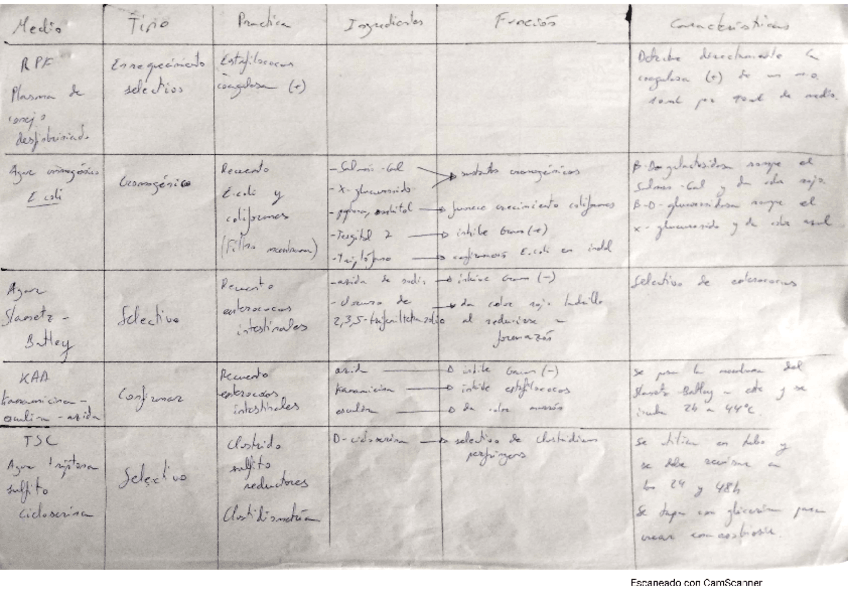 Medio Tipo Practica Ingredientes Función Características
RPF
Plasma de
conejo
desfibrinado
Enriquecimiento
selectivo
Estafilococos
coagulasa (+)
Detectar directamente la
coagulasa (+) de un m.o.
total por total de medio.
Agar cromogénico
E. coli
Cromogénico
Recuento
E. coli y
coliformes
(Filtro membrana)
- Salmon-Gal
- X-glucuronido
- sorbitol
- Tergitol 2
- Triptófano
sustratos cromogénicos
favorece crecimiento coliformes
inhibe Gram (+)
confirmamos E. coli en indol
B-D-galactosidasa rompe el
Salmon-Gal y da color rojo
B-D-glucuronidasa rompe el
X-glucuronido y da color azul
Agar
Slanetz -
Batley
Selectivo
Recuento
enterococos
intestinales
- azida de sodio
2,3,5-trifeniltetrazolio
inhibe Gram (-)
da color rojo ladrillo
al reducirse a
formazán
Selectivo de enterococos
KAA
kanamicina -
esculina - azida
Confirmar
Recuento
enterococos
intestinales
azida
kanamicina
esculina
inhibe Gram (-)
inhibe estafilococos
da color marrón
Se pasa la membrana del
Slanetz-Batley a este y se
incuba 2h a 44°C.
TSC
Agar triptosa
sulfito
cicloserina
Selectivo
Clostridio
sulfito
reductores
D-cicloserina
selectivo de clostridium
perfringens
Se utiliza en tubo y
se debe revisar a
las 24 y 48h
Se tapa con glicerina para
crear
Escaneado con CamScanner